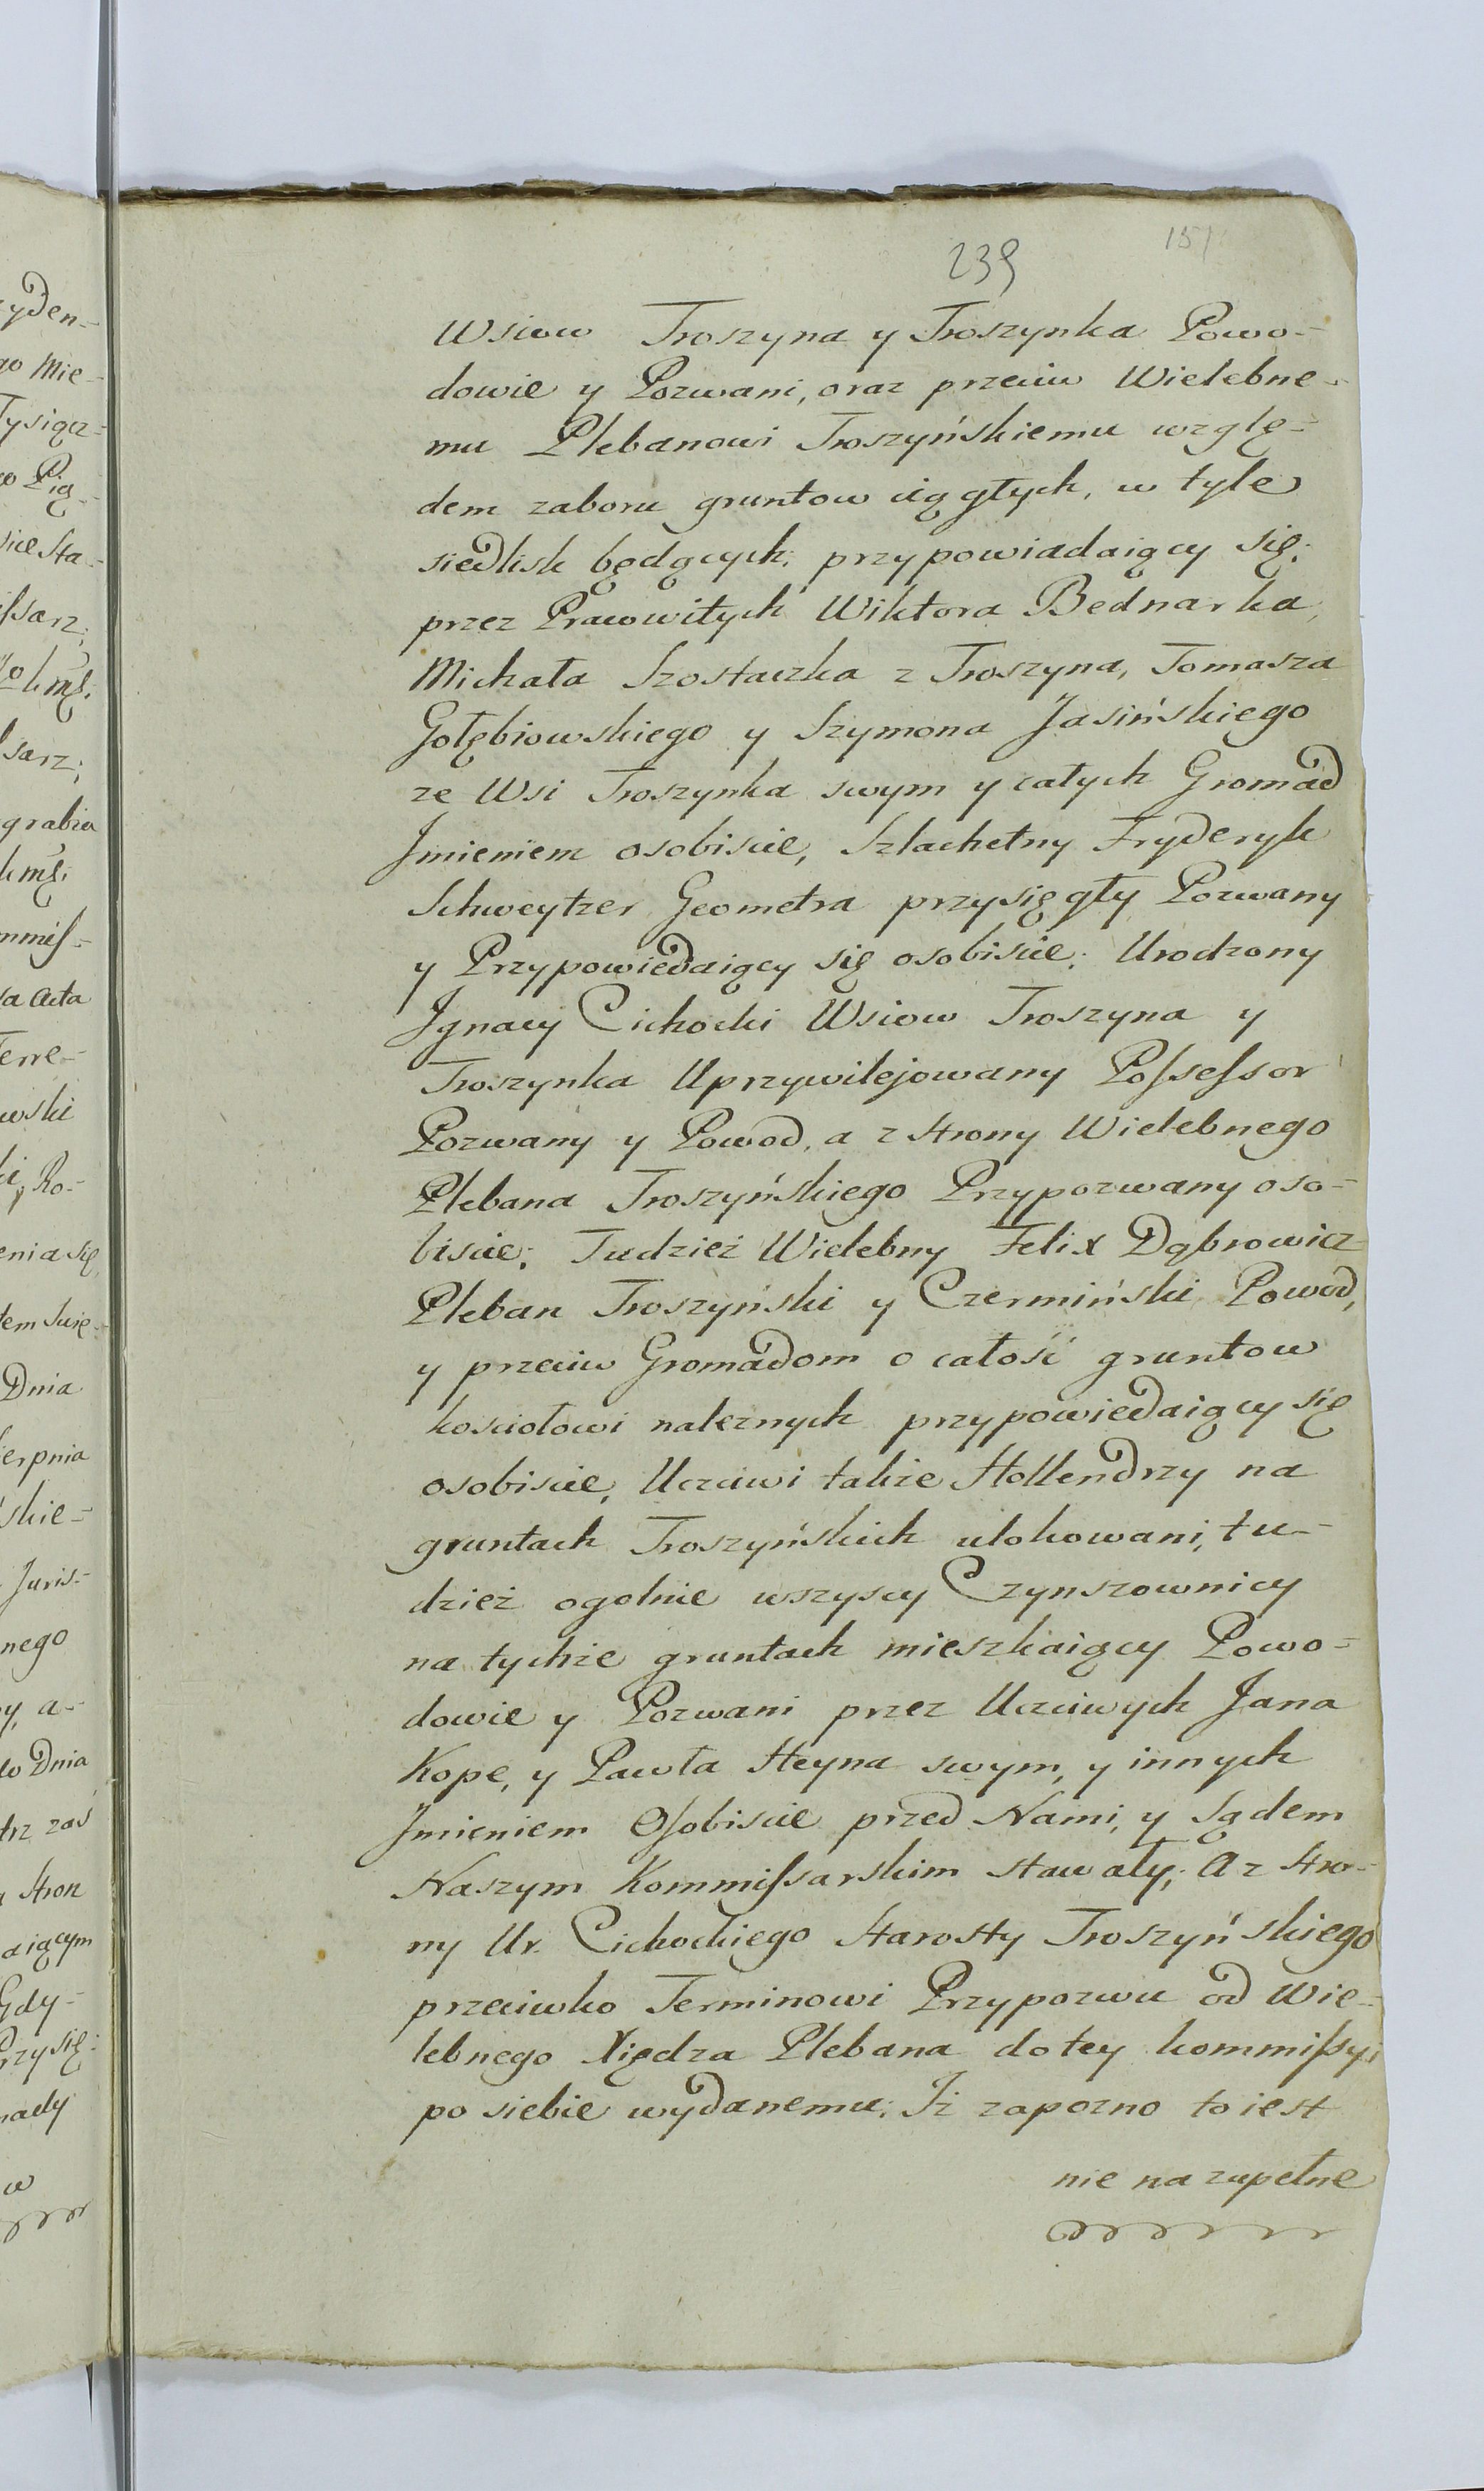 239
151
Wsiow Troszyna y Troszynka Powo-
dowie y Pozwani, oraz przeciw Wielebne-
mu Plebanowi Troszyńskiemu wzglę-
dem zaboru gruntow ciągłych, w tyle
siedlisk będących; przypowiadaiący się;
przez Prawowitych Wiktora Bednarka,
Michała Szostaczka z Troszyna, Tomasza
Gołębiowskiego y Szymona Jasińskiego
ze Wsi Troszynka swym y całych Gromad
Jmieniem osobiscie, Szlachetny Fryderyk
Schweytzer Geometra przysięgły Pozwany
y Przypowiedaiący się osobiscie; Urodzony
Jgnacy Cichocki Wsiow Troszyna y
Troszynka Uprzywilejowany Possessor
Pozwany y Powod, a z strony Wielebnego
Plebana Troszyńskiego Przypozwany oso-
biscie; Tudzież Wielebny Felix Dąbrowicz
Pleban Troszyński y Czermiński Powod,
y przeciw Gromadom o całość gruntow
kosciołowi należnych przypowiedaiący się
osobiscie, Uczciwi także Hollendrzy na
gruntach Troszyńskich ulokowani, tu-
dzież ogolnie wszyscy Czynszownicy
na tychże gruntach mieszkaiący Powo-
dowie y Pozwani przez Uczciwych Jana
Kope, y Pawła Heyna swym, y innych
Jmieniem Osobiscie przed Nami, y Sądem
Naszym Kommissarskim stawały; A z stro-
ny Ur. Cichockiego Starosty Troszyńskiego
przeciwko Terminowi Przypozwu od Wie-
lebnego Xiędza Plebana do tey kommissyi
po siebie wydanemu; Jż zapozno to iest
nie na zupełne
yden-
go Mie-
Tysiącz-
Pią-
Sta-
ssarz;
sarz;
grabia
mmis-
Acta
Terre-
wski
Ro-
enia się
Dnia
erpnia
skie-
Juris-
nego
y, a-
do Dnia
trz zaś
Stron
aiącym
Gdy-
Przysię-
w